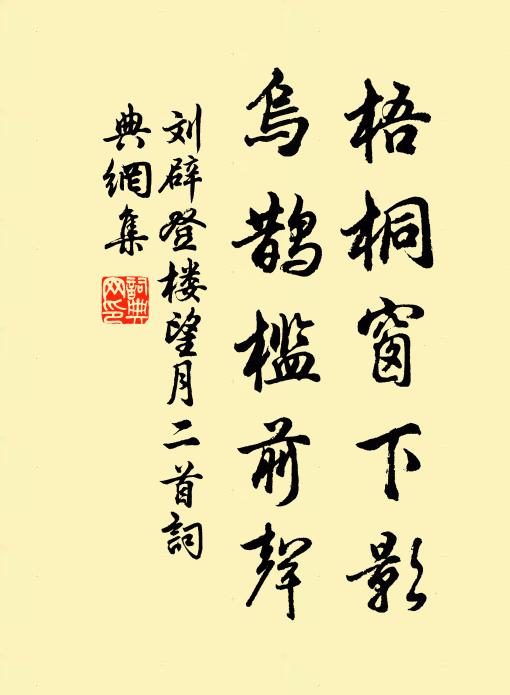 梧桐窗下影
烏鵲檻前聲
刘辟登楼望月二首詞
典網集
詞典网印